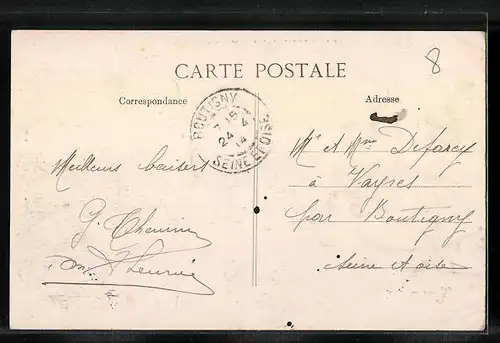 8
CARTE POSTALE
Correspondance
Adresse
BOUTIGNY
7 15
24 4
14
SEINE ET OISE
Meilleurs baisers
G.
Mr et Mme Deforcy
à Vayres
par Boutigny
Seine et oise